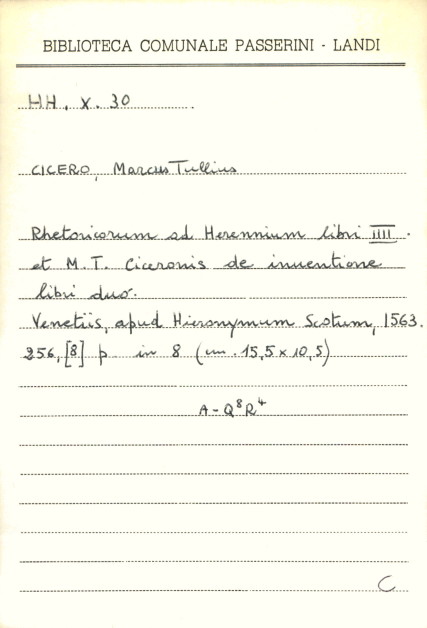 BIBLIOTECA COMUNALE PASSERINI - LANDI
HH. X. 30
CICERO, Marcus Tullius
Rhetoricorum ad Herennium libri IIII.
et M. T. Ciceronis de inventione
libri duo.
Venetiis, apud Hieronymum Scotum, 1563.
256, [8] p in 8 (cm. 15,5 x 10,5)
A-Q⁸R⁴
C